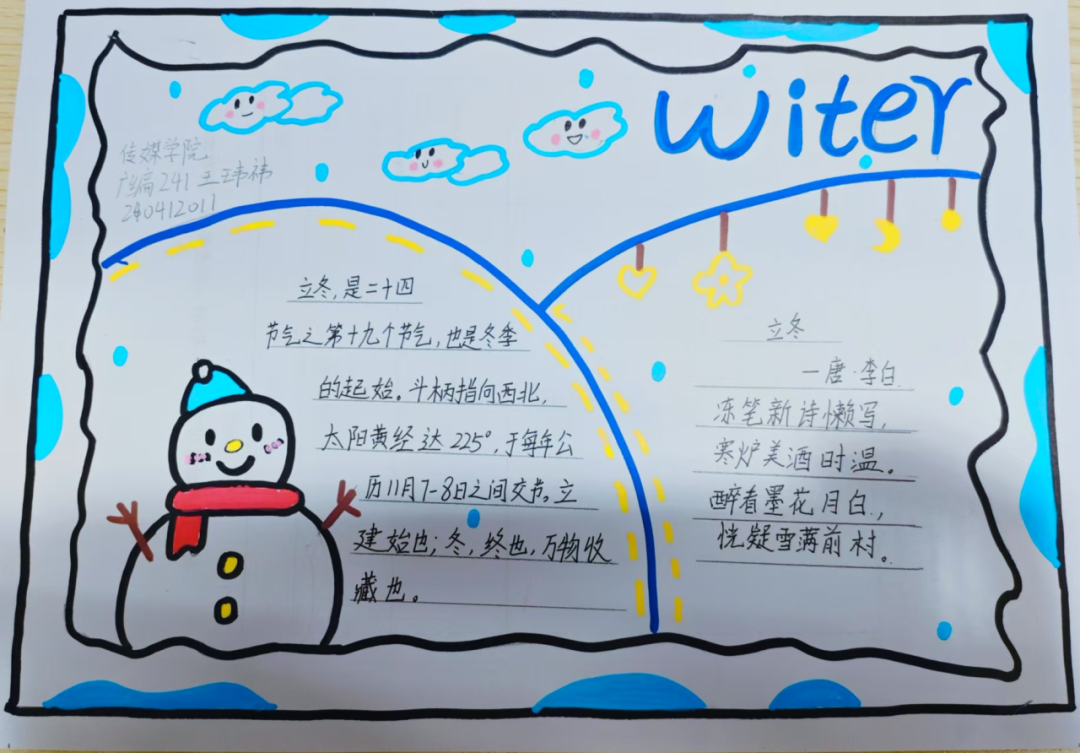 witer
传媒学院
广编241 王玮祎
240412011
立冬,是二十四
节气之第十九个节气,也是冬季
的起始。斗柄指向西北,
太阳黄经达225°,于每年公
历11月7-8日之间交节。立
建始也;冬,终也,万物收
藏也。
立冬
一唐·李白
冻笔新诗懒写,
寒炉美酒时温。
醉看墨花月白,
恍疑雪满前村。